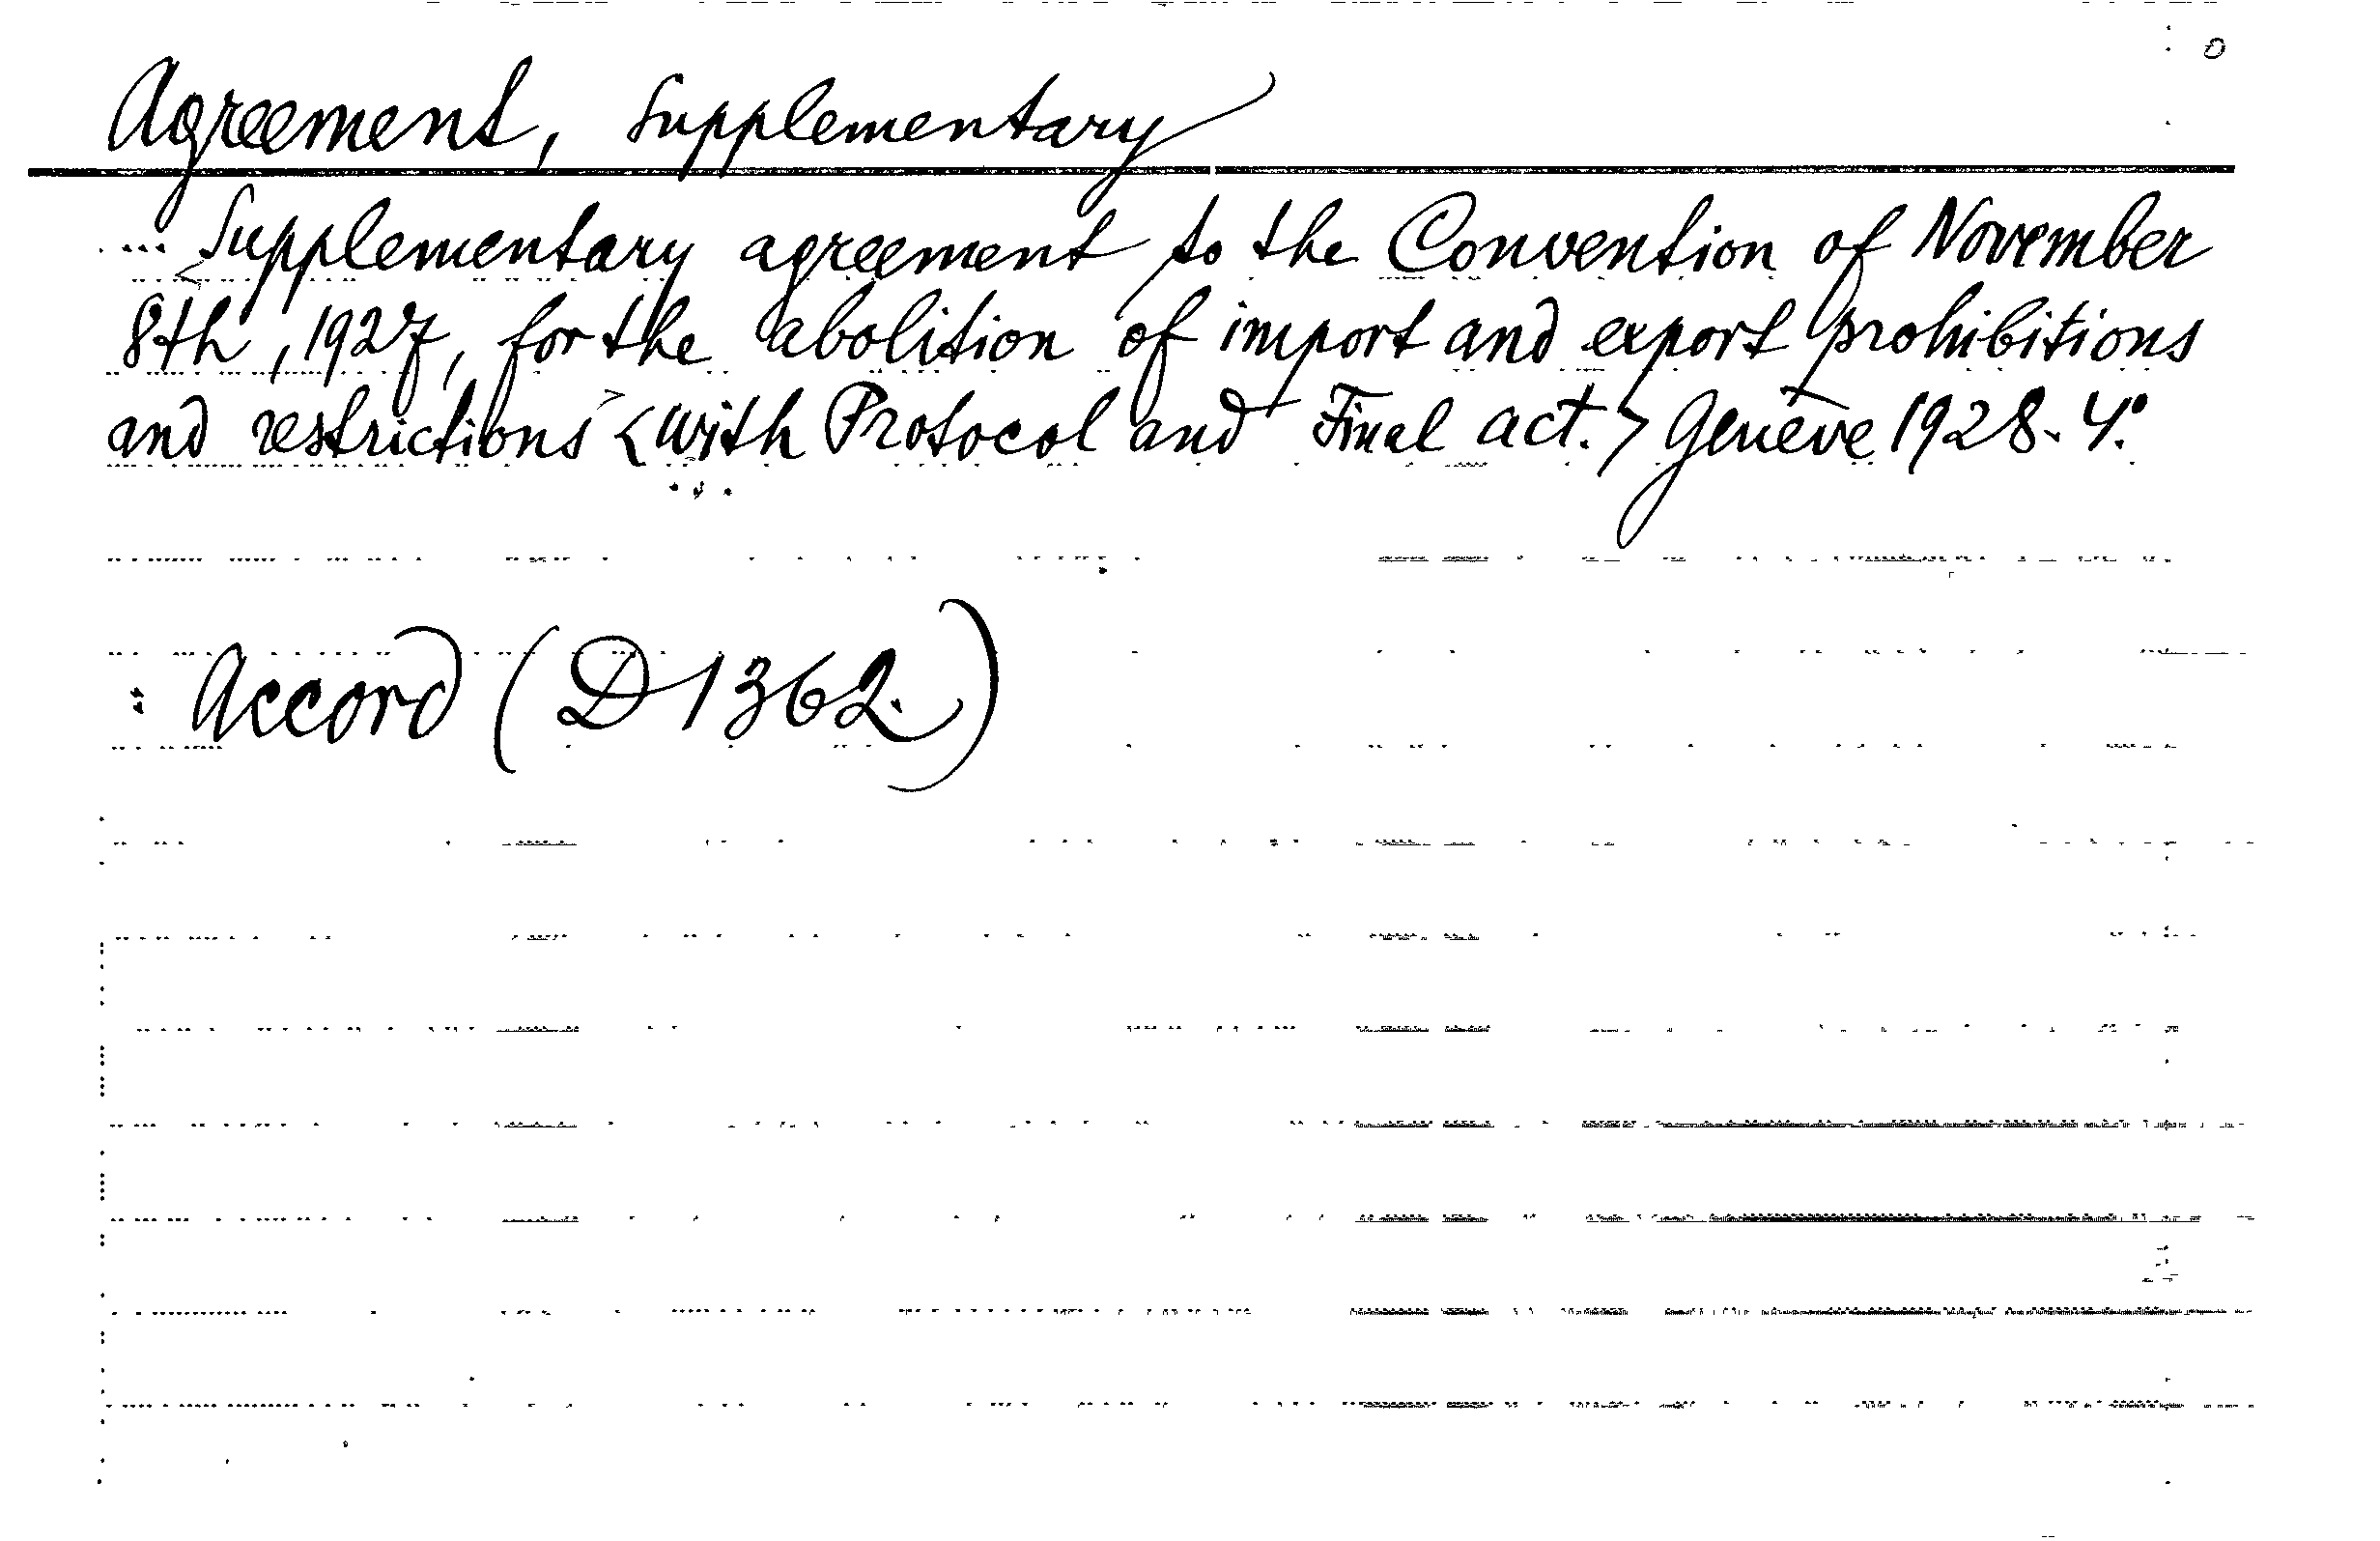 Agreement, Supplementary
... Supplementary agreement to the Convention of November
8th, 1927, for the abolition of import and export prohibitions
and restrictions <with Protocol and Final act.> Genève 1928. 4°.
: Accord (D1362.)